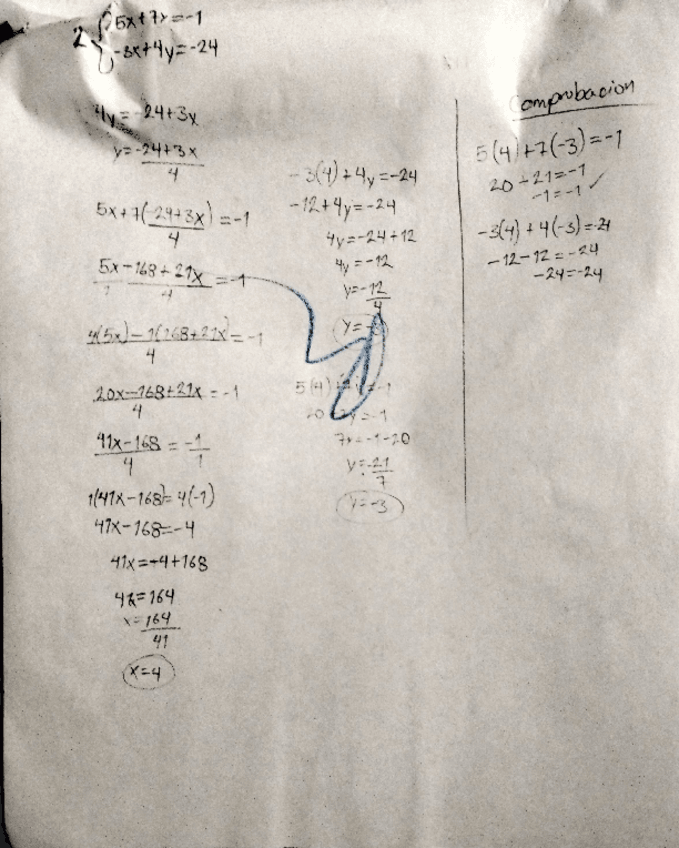 2 { 5x+7y=-1
-3x+4y=-24
4y=-24+3x
y=-24+3x
4
5x+7(-24+3x)=-1
4
5x-168+21x=-1
1 4
4(5x)-1(168+21x)=-1
4
20x-168+21x=-1
4
41x-168=-1
4 1
1(41x-168)=4(-1)
41x-168=-4
41x=-4+168
41x=164
x=164
41
x=4
-3(4)+4y=-24
-12+4y=-24
4y=-24+12
4y=-12
y=-12
4
y=
5(4)
20 7y=-1
7y=-1-20
y=-21
7
y=-3
Comprobacion
5(4)+7(-3)=-1
20-21=-1
-1=-1 ✓
-3(4)+4(-3)=-24
-12-12=-24
-24=-24